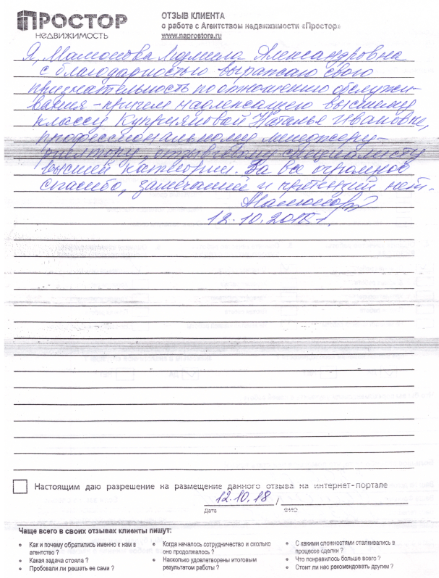 ПРОСТОР
НЕДВИЖИМОСТЬ
ОТЗЫВ КЛИЕНТА
о работе с Агентством недвижимости «Простор»
www.naprostore.ru
Я, Людмила Александровна
с благодарностью выражаю свою
признательность по отношению обслужи-
вания - причем надлежащего высшему
классу Наталье Ивановне,
профессиональному менеджеру-
высшей категории. За все огромное
спасибо, замечаний и претензий нет.
12.10.2018 г.
Настоящим даю разрешение на размещение данного отзыва на интернет-портале
12.10.18 /
Дата
Чаще всего в своих отзывах клиенты пишут:
• Как и почему обратились именно к нам в агентство ?
• Какая задача стояла ?
• Пробовали ли решать ее сами ?
• Когда началось сотрудничество и сколько оно продолжалось ?
• Насколько удовлетворены итоговым результатом работы ?
• С какими сложностями сталкивались в процессе сделки ?
• Что понравилось больше всего ?
• Стоит ли нас рекомендовать другим ?